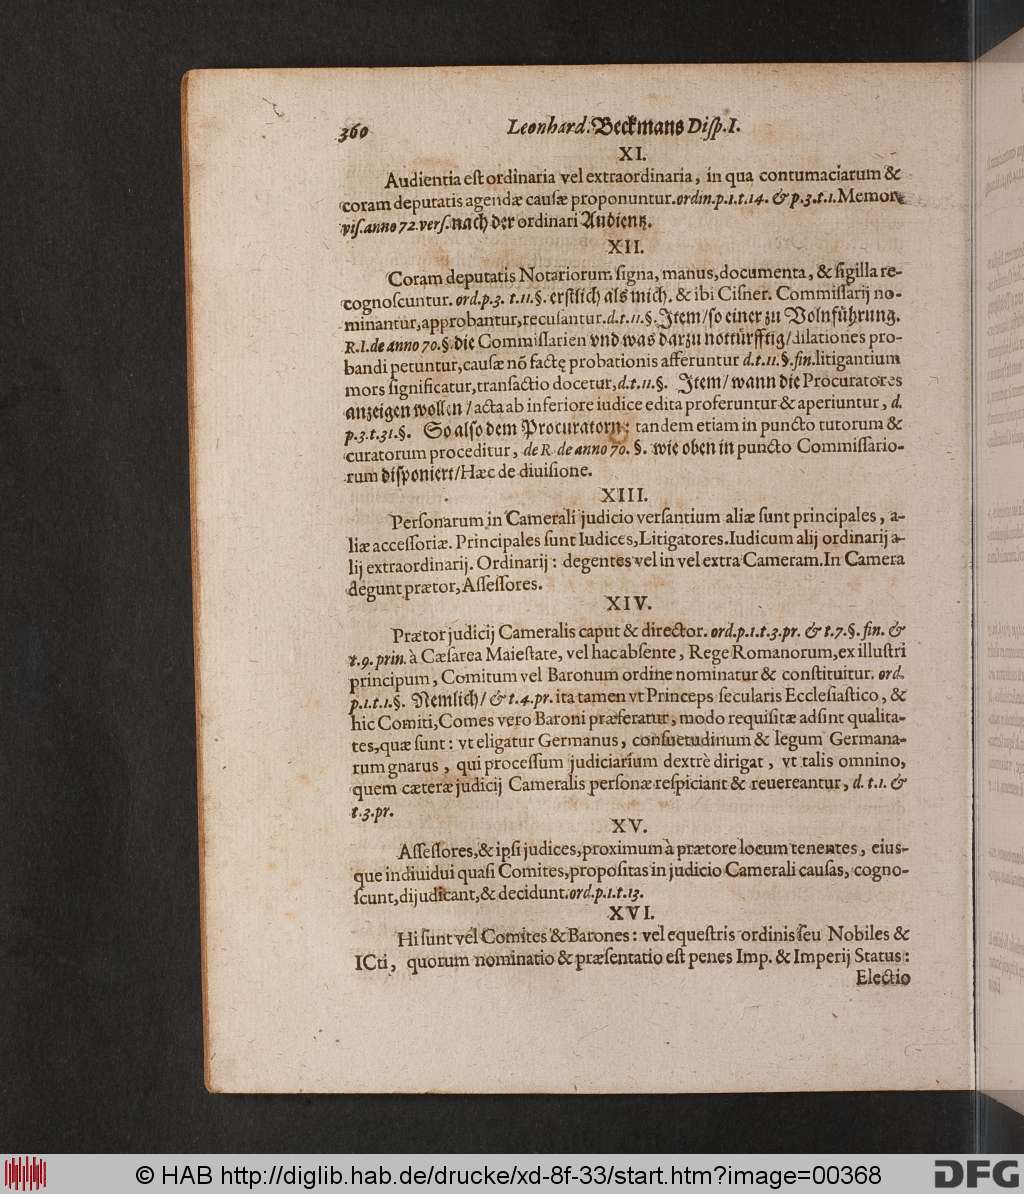 360 Leonhard. Beckmans Disp. I.
XI.
Audientia est ordinaria vel extraordinaria, in qua contumaciarum &
coram deputatis agendæ causæ proponuntur. ordin. p. 1. t. 14. & p. 3. t. 1. Memor.
vis. anno 72. vers. nach der ordinari Audientz.
XII.
Coram deputatis Notariorum signa, manus, documenta, & sigilla re-
cognoscuntur. ord. p. 3. t. 11. §. erstlich als mich. & ibi Cisner. Commissarij no-
minantur, approbantur, recusantur. d. t. 11. §. Item/ so einer zu Volnführung.
R. I. de anno 70. §. die Commissarien vnd was darzu nottürfftig/ dilationes pro-
bandi petuntur, causæ nõ factę probationis afferuntur d. t. 11. §. fin. litigantium
mors significatur, transactio docetur, d. t. 11. §. Item/ wann die Procuratores
anzeigen wollen/ acta ab inferiore iudice edita proferuntur & aperiuntur, d.
p. 3. t. 31. §. So also dem Procuratorn: tandem etiam in puncto tutorum &
curatorum proceditur, de R. de anno 70. §. wie oben in puncto Commissario-
rum disponiert/ Hæc de diuisione.
XIII.
Personarum in Camerali judicio versantium aliæ sunt principales, a-
liæ accessoriæ. Principales sunt Iudices, Litigatores. Iudicum alij ordinarij a-
lij extraordinarij. Ordinarij: degentes vel in vel extra Cameram. In Camera
degunt prætor, Assessores.
XIV.
Prætor judicij Cameralis caput & director. ord. p. 1. t. 3. pr. & t. 7. §. fin. &
t. 9. prin. à Cæsarea Maiestate, vel hac absente, Rege Romanorum, ex illustri
principum, Comitum vel Baronum ordine nominatur & constituitur. ord.
p. 1. t. 1. §. Nemlich/ & t. 4. pr. ita tamen vt Princeps secularis Ecclesiastico, &
hic Comiti, Comes vero Baroni præferatur, modo requisitæ adsint qualita-
tes, quæ sunt: vt eligatur Germanus, consuetudinum & legum Germana-
rum gnarus, qui processum judiciarium dextrè dirigat, vt talis omnino,
quem cæteræ judicij Cameralis personæ respiciant & reuereantur, d. t. 1. &
t. 3. pr.
XV.
Assessores, & ipsi judices, proximum à prætore locum tenentes, eius-
que indiuidui quasi Comites, propositas in judicio Camerali causas, cogno-
scunt, dijudicant, & decidunt. ord. p. 1. t. 13.
XVI.
Hi sunt vel Comites & Barones: vel equestris ordinis seu Nobiles &
ICti, quorum nominatio & præsentatio est penes Imp. & Imperij Status:
Electio
© HAB http://diglib.hab.de/drucke/xd-8f-33/start.htm?image=00368
DFG